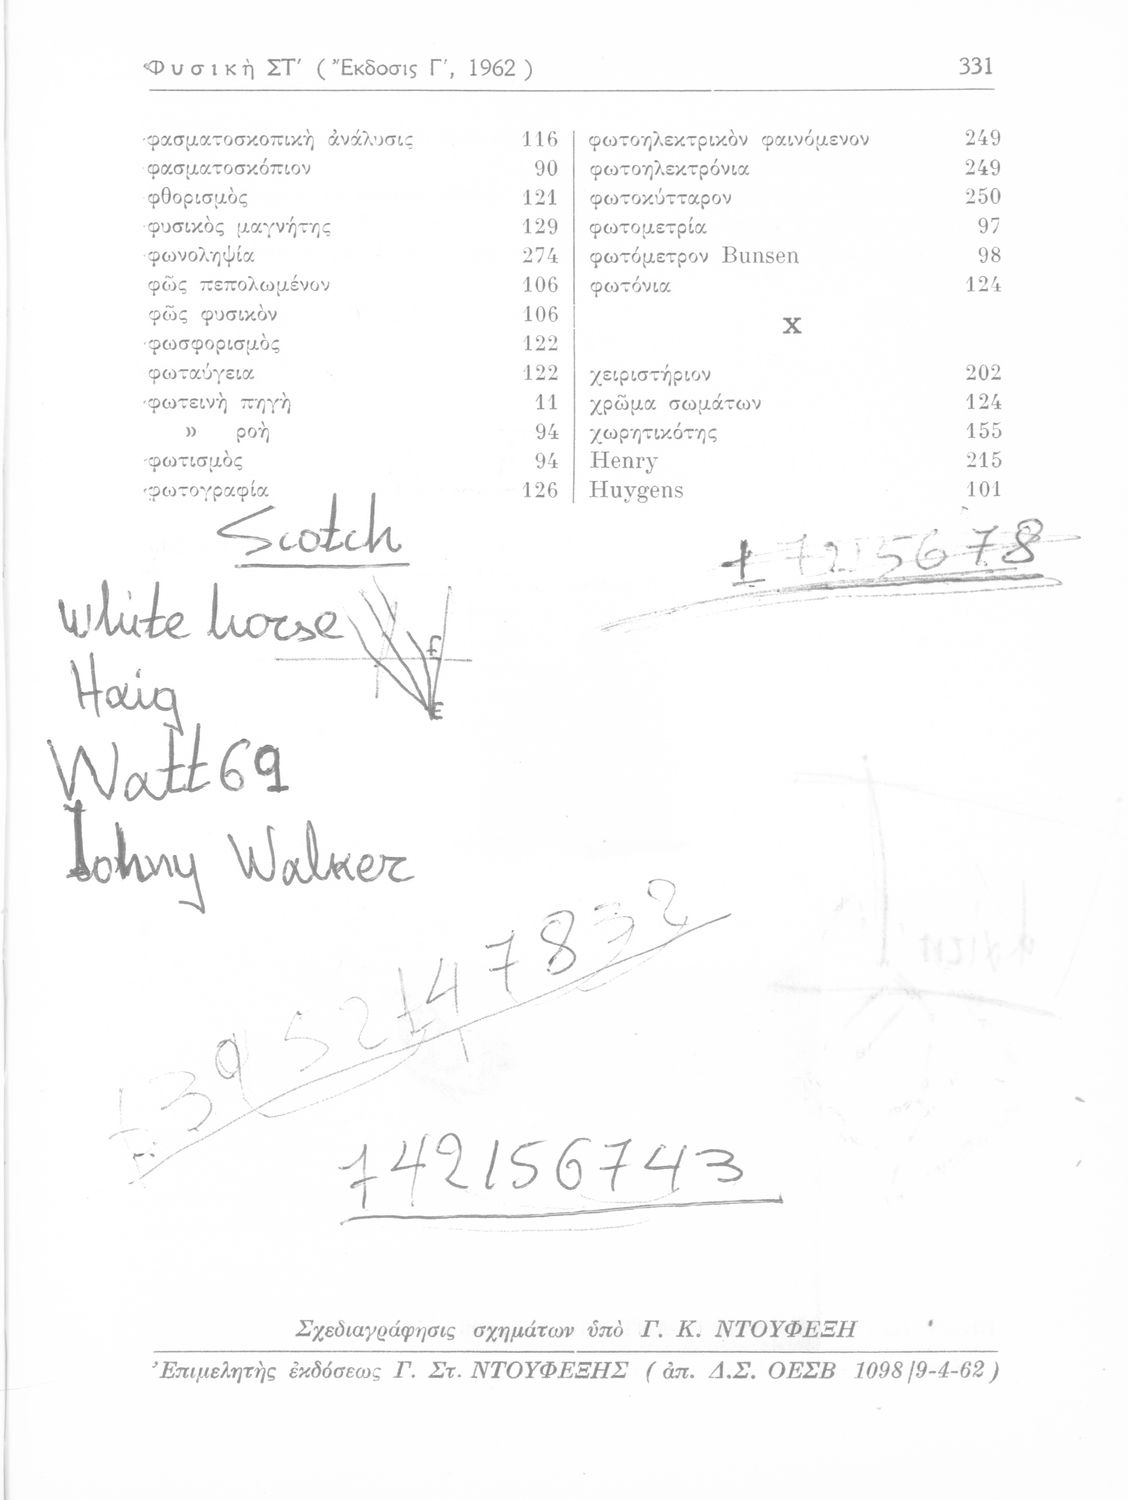 Φυσικὴ ΣΤ′ ( Ἔκδοσις Γ′, 1962 ) 331
φασματοσκοπικὴ ἀνάλυσις 116
φασματοσκόπιον 90
φθορισμὸς 121
φυσικὸς μαγνήτης 129
φωνοληψία 274
φῶς πεπολωμένον 106
φῶς φυσικὸν 106
φωσφορισμὸς 122
φωταύγεια 122
φωτεινὴ πηγὴ 11
» ροὴ 94
φωτισμὸς 94
φωτογραφία 126
φωτοηλεκτρικὸν φαινόμενον 249
φωτοηλεκτρόνια 249
φωτοκύτταρον 250
φωτομετρία 97
φωτόμετρον Bunsen 98
φωτόνια 124
Χ
χειριστήριον 202
χρῶμα σωμάτων 124
χωρητικότης 155
Henry 215
Huygens 101
Scotch
17215678
White horse
f
E
Haig
Watt 69
Johny Walker
3952147832
1421567 43
Σχεδιαγράφησις σχημάτων ὑπὸ Γ. Κ. ΝΤΟΥΦΕΞΗ
Ἐπιμελητὴς ἐκδόσεως Γ. Στ. ΝΤΟΥΦΕΞΗΣ ( ἀπ. Δ.Σ. ΟΕΣΒ 1098/9-4-62 )